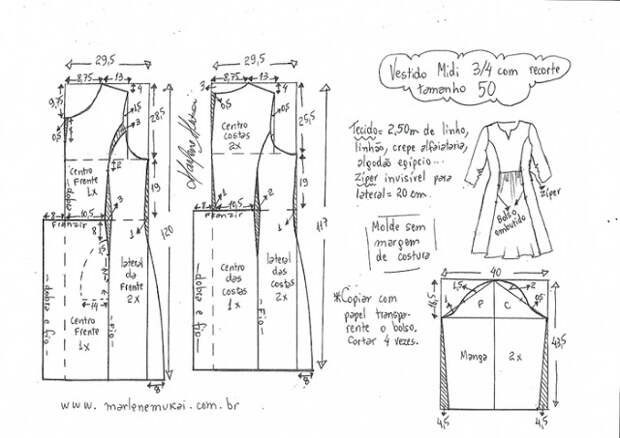 Vestido Midi 3/4 com recorte
tamanho 50
29,5
8,75
13
4
9,75
0,5
1,5
3
28,5
Centro
Frente
1x
dobra
2
19
3
8
10,5
Franzir
8
1
120
14
lateral
da
Frente
2x
Centro
Frente
1x
dobra e fio
Fio
8
29,5
8,75
13
4
3
0,5
0,5
25,5
Centro
costas
2x
1
2
19
8
10,5
Franzir
1
117
Centro
das
costas
1x
lateral
das
Costas
2x
dobra e fio
Fio
8
Marlene Mukai
Tecido= 2,50m de linho,
linhão, crepe alfaiataria,
algodão egípcio...
Zíper invisível para
lateral = 20 cm.
Molde sem
margem
de costura
Zíper
Bolso
embutido
*Copiar com
papel transpa-
rente o bolso.
Cortar 4 vezes.
40
1,5
2
1
0,5
P
C
Manga
2x
43,5
4,5
4,5
www.marlenemukai.com.br